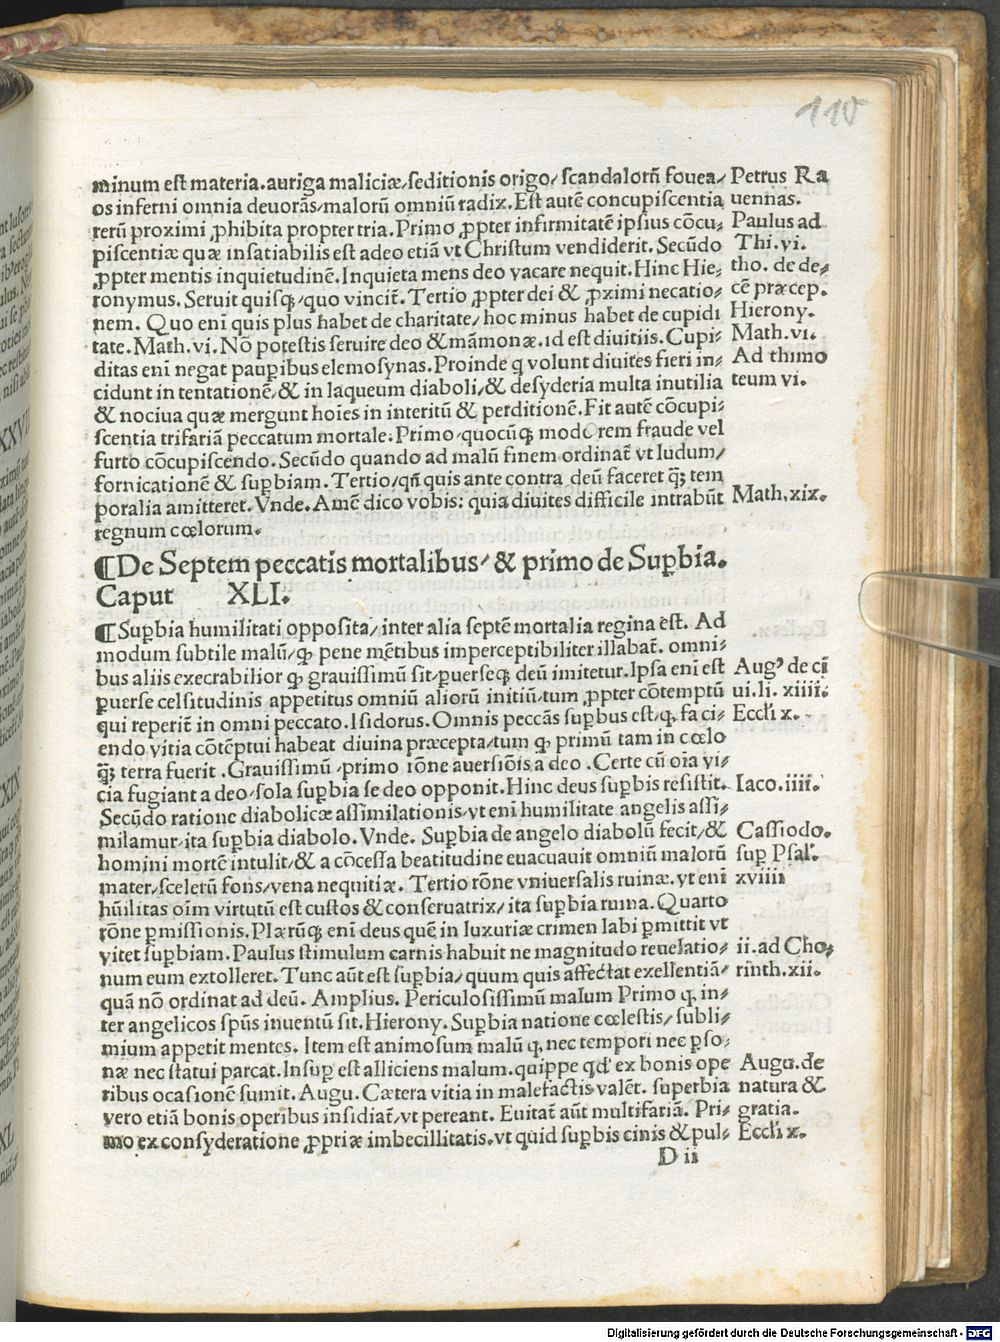 110
minum est materia.auriga maliciæ/seditionis origo/ scandalorū fouea/ Petrus Ra
os inferni omnia deuorās/malorū omniū radix. Est autē concupiscentia uennas.
rerū proximi ꝓhibita propter tria. Primo ꝓpter infirmitatē ipsius cōcu⸗ Paulus ad
piscentiæ quæ insatiabilis est adeo etiā vt Christum vendiderit. Secūdo Thi.vi.
ꝓpter mentis inquietudinē. Inquieta mens deo vacare nequit. Hinc Hie⸗ tho. de de⸗
ronymus. Seruit quisq̧ /quo vincit̄. Tertio ꝓpter dei & ꝓximi necatio⸗ cē præcep.
nem. Quo eni quis plus habet de charitate/ hoc minus habet de cupidi Hierony.
tate. Math.vi. Nō potestis seruire deo & māmonæ.id est diuitiis. Cupi⸗ Math.vi.
ditas eni negat paupibus elemosynas. Proinde q volunt diuites fieri in⸗ Ad thimo
cidunt in tentationē/& in laqueum diaboli/& desyderia multa inutilia teum vi.
& nociua quæ mergunt hoies in interitū & perditionē. Fit autē cōcupi⸗
scentia trifariā peccatum mortale. Primo/quocūq̧ modo rem fraude vel
furto cōcupiscendo. Secūdo quando ad malū finem ordinat̄ vt ludum/
fornicationē & suꝑbiam. Tertio/qñ quis ante contra deū faceret q̄ꝫ tem
poralia amitteret. Vnde. Amē dico vobis: quia diuites difficile intrabūt Math.xix.
regnum cœlorum.
¶De Septem peccatis mortalibus/ & primo de Suꝑbia.
Caput XLI.
¶Suꝑbia humilitati opposita/inter alia septē mortalia regina est. Ad
modum subtile malū/ꝙ pene mētibus imperceptibiliter illabat̄. omni⸗
bus aliis execrabilior ꝙ grauissimū sit/ꝑuerseq̧ deū imitetur.Ipsa eni est Augꝰ de ci
ꝑuerse celsitudinis appetitus omniū aliorū initiū/tum ꝓpter cōtemptū ui.li. xiiii.
qui reperit̄ in omni peccato. Isidorus. Omnis peccās suꝑbus est/ꝙ faci⸗ Eccli x.
endo vitia cōtēptui habeat diuina præcepta/tum ꝙ primū tam in cœlo
q̄ꝫ terra fuerit .Grauissimū /primo rōne auersiōis a deo .Certe cū oīa vi⸗
cia fugiant a deo/sola suꝑbia se deo opponit. Hinc deus suꝑbis resistit. Iaco.iiii.
Secūdo ratione diabolicæ assimilationis/vt eni humilitate angelis assi⸗
milamur/ita suꝑbia diabolo. Vnde. Suꝑbia de angelo diabolū fecit/& Cassiodo.
homini mortē intulit/& a cōcessa beatitudine euacuauit omniū malorū suꝑ Psal.
mater/scelerū fons/vena nequitiæ. Tertio rōne vniuersalis ruinæ.vt eni xviii
hūilitas oīm virtutū est custos & conseruatrix/ita suꝑbia ruina. Quarto
rōne ꝑmissionis. Plærūq̧ eni deus quē in luxuriæ crimen labi ꝑmittit vt
vitet suꝑbiam. Paulus stimulum carnis habuit ne magnitudo reuelatio⸗ ii.ad Cho⸗
num eum extolleret. Tunc aūt est suꝑbia/quum quis affectat exellentiā/ rinth.xii.
quā nō ordinat ad deū. Amplius. Periculosissimū malum Primo ꝙ in⸗
ter angelicos spūs inuentū sit. Hierony. Suꝑbia natione cœlestis/subli⸗
mium appetit mentes. Item est animosum malū ꝙ nec tempori nec ꝑso⸗
næ nec statui parcat. Insuꝑ est alliciens malum.quippe qd' ex bonis ope Augu.de
ribus ocasionē sumit. Augu. Cætera vitia in malefactis valēt. superbia natura &
vero etiā bonis operibus insidiat̄/vt pereant. Euitat̄ aūt multifariā. Pri⸗ gratia.
mo ex consyderatione ꝓpriæ imbecillitatis.vt quid suꝑbis cinis & pul⸗ Eccli x.
D ii
Digitalisierung gefördert durch die Deutsche Forschungsgemeinschaft - DFG